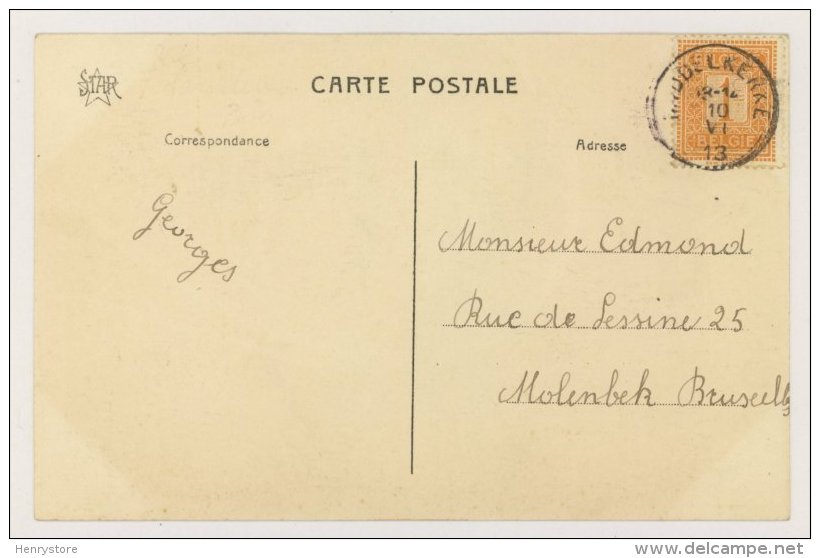 STAR
CARTE POSTALE
Correspondance
Adresse
1
BELGIE
10
VI
13
Georges
Monsieur Edmond
Rue de Lessine 25
Molenbek Bruxelles
Henrystore
delcampe.net